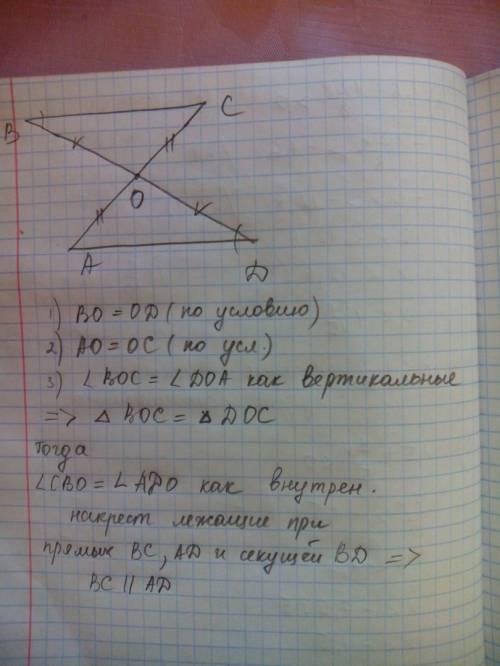 B
C
O
A
D
1) BO = OD (по условию)
2) AO = OC (по усл.)
3) ∠ BOC = ∠ DOA как вертикальные
=> △ BOC = △ DOC
Тогда
∠CBO = ∠ADO как внутрен.
накрест лежащие при
прямых BC, AD и секущей BD =>
BC || AD